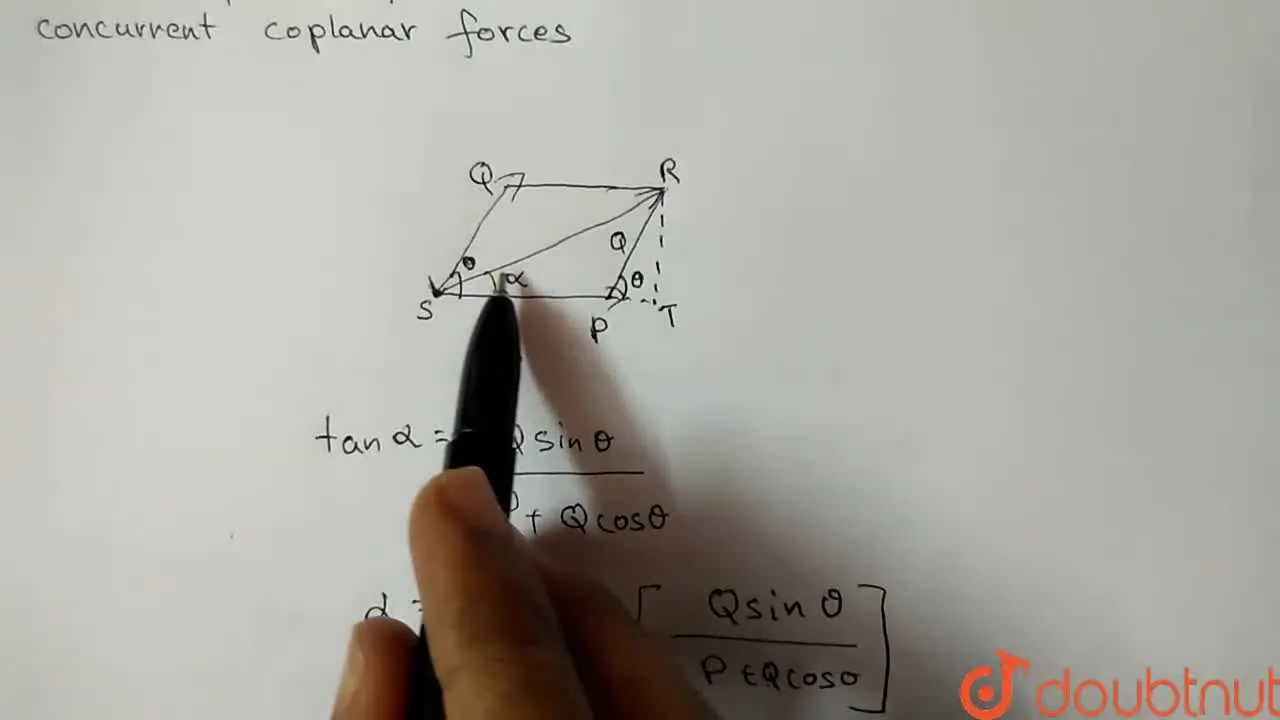 concurrent coplanar forces
Q R
Q
θ α θ
S P T
tan α = Q sin θ
P + Q cos θ
α = [ Q sin θ ]
P + Q cos θ
doubtnut